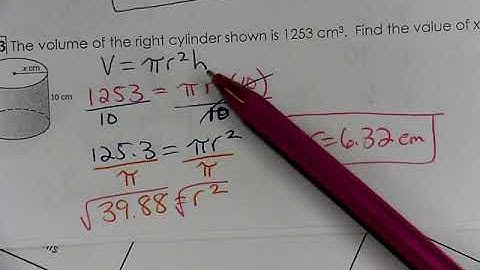 3 The volume of the right cylinder shown is 1253 cm³. Find the value of x
x cm
10 cm
V = πr²h
1253 = πr²(10)
10 10
125.3 = πr²
π π
√39.88 = √r²
r = 6.32 cm